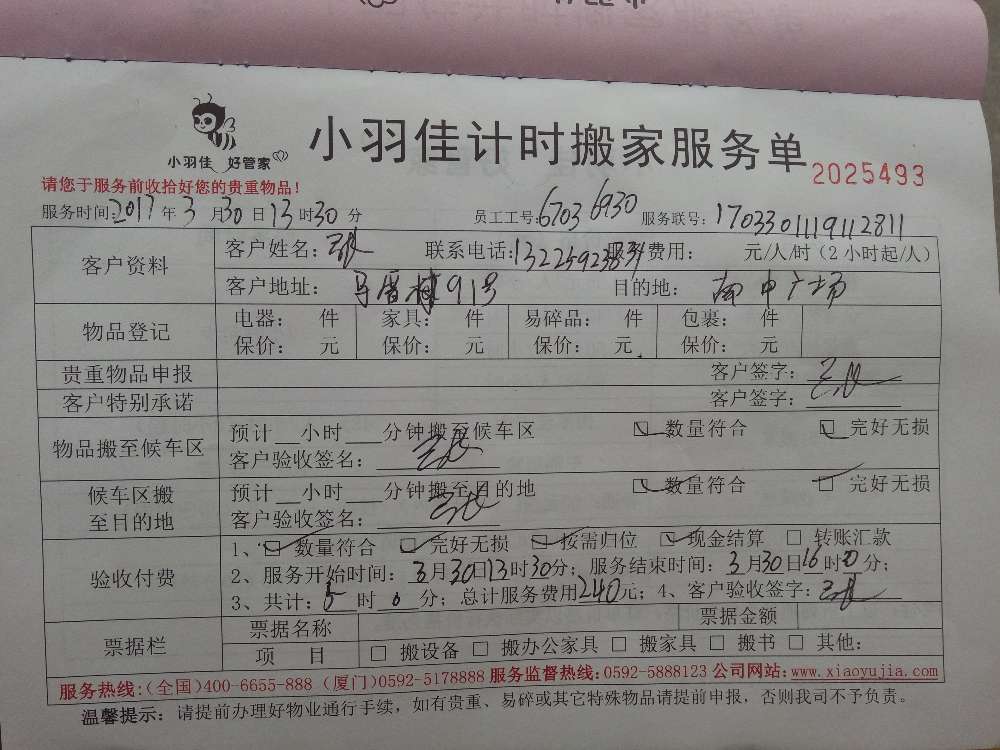 小羽佳 好管家
小羽佳计时搬家服务单
2025493
请您于服务前收拾好您的贵重物品！
服务时间:2017年3月30日13时30分 员工工号:6703 6930 服务联号:1703301119112811
客户资料 客户姓名: 联系电话: 服务费用: 元/人/时（2小时起/人）
客户地址: 91号 目的地: 南中广场
物品登记 电器: 件 家具: 件 易碎品: 件 包裹: 件
保价: 元 保价: 元 保价: 元 保价: 元
贵重物品申报 客户签字:
客户特别承诺 客户签字:
物品搬至候车区 预计__小时___分钟搬至候车区 ☑ 数量符合 ☑ 完好无损
客户验收签名:
候车区搬至目的地 预计__小时___分钟搬至目的地 ☑ 数量符合 ☑ 完好无损
客户验收签名:
验收付费 1、☑ 数量符合 ☑ 完好无损 ☑ 按需归位 ☑ 现金结算 □ 转账汇款
2、服务开始时间: 3月30日13时30分; 服务结束时间: 3月30日16时分;
3、共计: 时 0 分; 总计服务费用240元; 4、客户验收签字:
票据栏 票据名称 票据金额
项 目 □ 搬设备 □ 搬办公家具 □ 搬家具 □ 搬书 □ 其他:
服务热线:(全国)400-6655-888 (厦门)0592-5178888 服务监督热线:0592-5888123 公司网站:www.xiaoyujia.com
温馨提示: 请提前办理好物业通行手续，如有贵重、易碎或其它特殊物品请提前申报，否则我司不予负责。